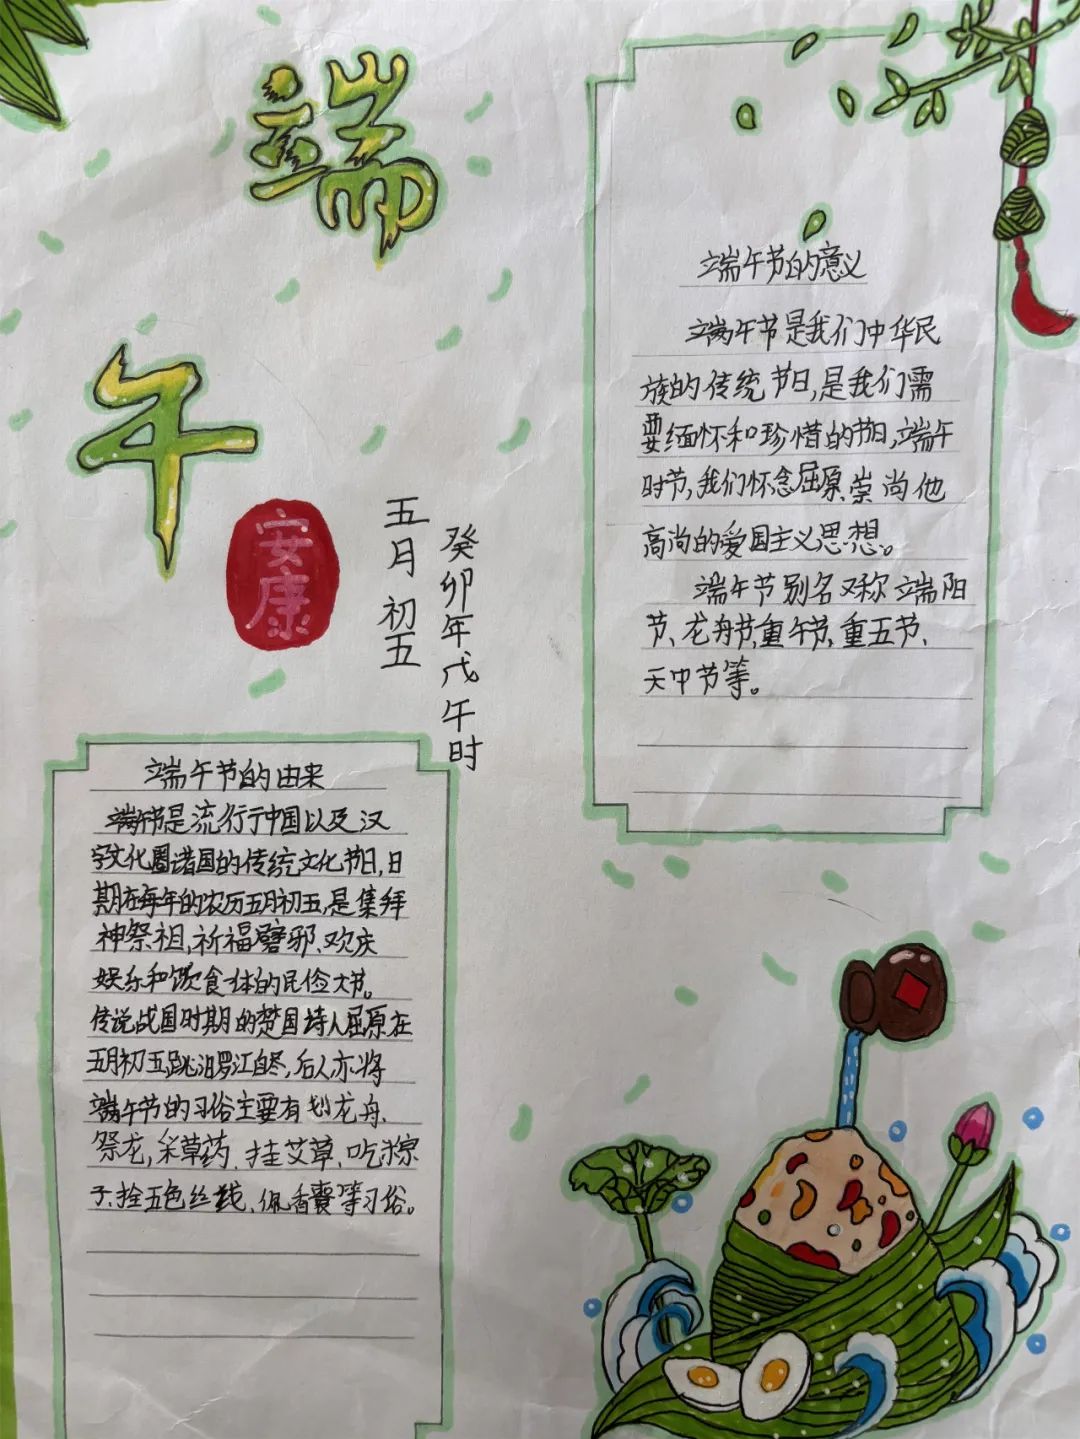 端
午
安康
五月初五
癸卯年戊午时
端午节的意义
端午节是我们中华民
族的传统节日,是我们需
要缅怀和珍惜的节日,端午
时节,我们怀念屈原、崇尚他
高尚的爱国主义思想。
端午节别名又称端阳
节、龙舟节、重午节、重五节、
天中节等。
端午节的由来
端午节是流行于中国以及汉
字文化圈诸国的传统文化节日,日
期在每年的农历五月初五,是集拜
神祭祖,祈福辟邪、欢庆
娱乐和饮食一体的民俗大节。
传说战国时期的楚国诗人屈原在
五月初五跳汨罗江自尽,后人亦将
端午节的习俗主要有划龙舟、
祭龙,采草药、挂艾草、吃粽
子、拴五色丝线、佩香囊等习俗。